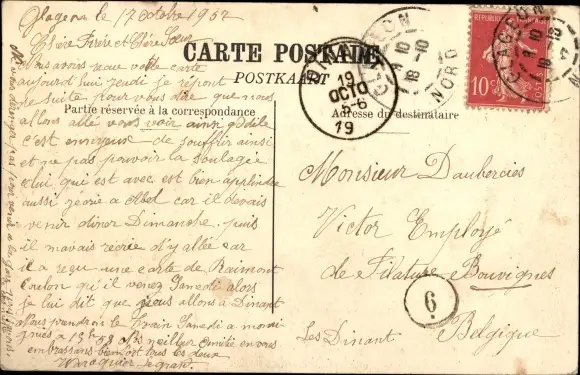 Glageon le 17 octobre 1907
Chère Frère et Chère Sœur
Nous avons reçu votre carte
aujourd'hui jeudi je répont
de suite pour vous dire que nous
allons allé vous voir ainsi q Odile
c'est ennuyeux de souffrir ainsi
et ne pas pouvoir la soulagé
celui qui est avec est bien applindre
aussi j'écrie a Abel car il devais
venir diner Dimanche puis
il mavais récrie d'y allé car
il a reçu une carte de Raimont
Coulon qu'il venez Samedi alors
je lui dit que nous allons à Dinant
Nous prendrons le train Samedi a
a 13h 58 meilleur Amitié en vous
embrassans bien fort tous les deux
CARTE POSTALE
POSTKAART
Partie réservée à la correspondance
Adresse du destinataire
DINANT
19
OCTO
5-6
19
GLAGEON
9 10
18 -10
NORD
GLAGEON
9 10
18 -10
REPUBLIQUE FRANÇAISE
10c
POSTES
Monsieur Daubercies
Victor Employé
de Filature Bouvignes
6
Les Dinant
Belgique